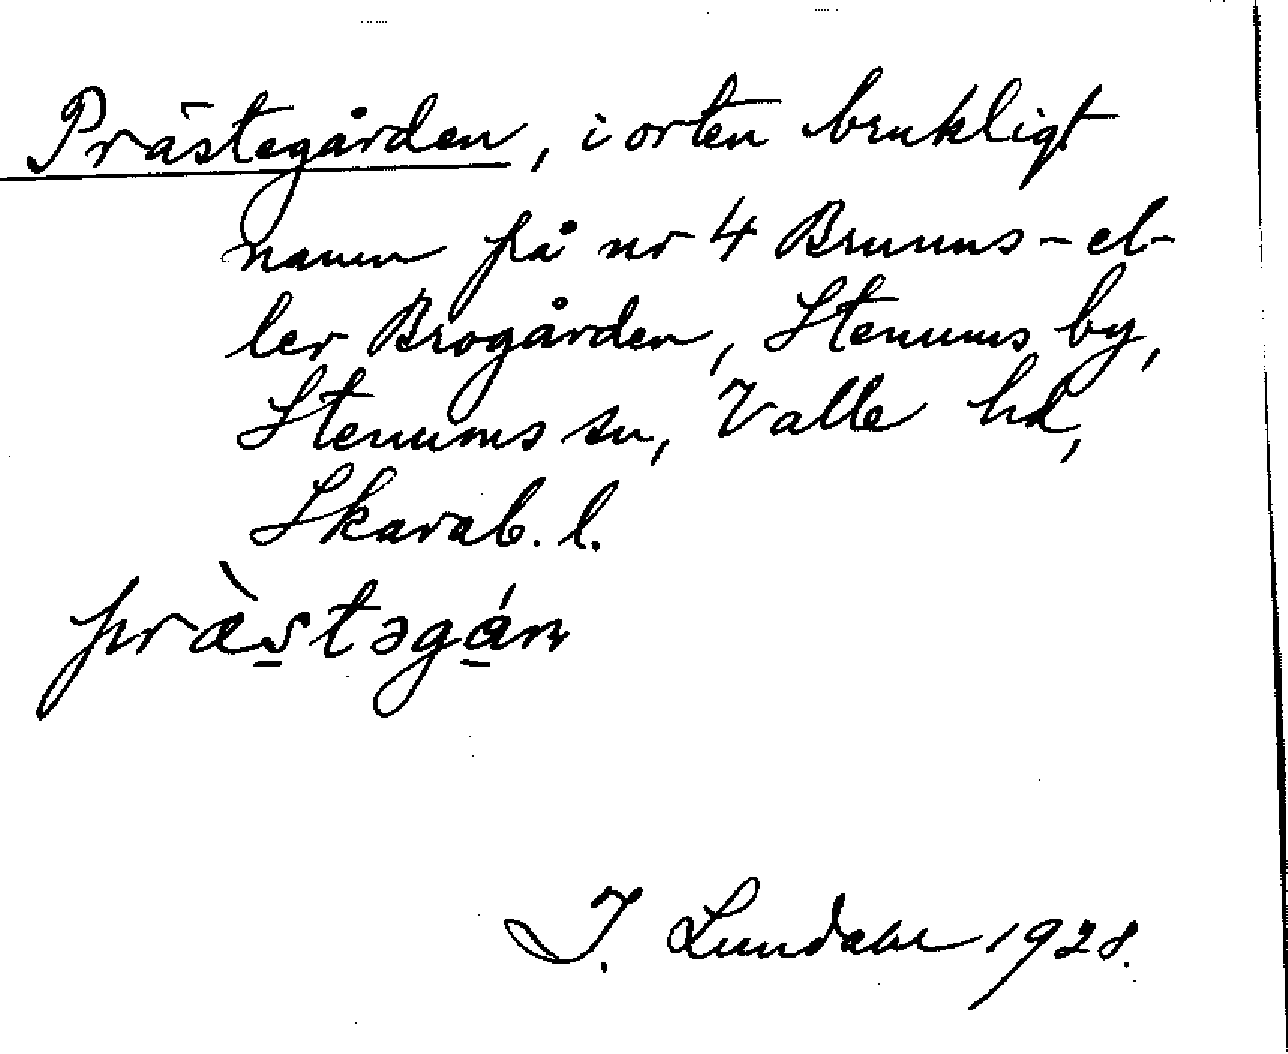 Prästegården, i orten brukligt
namn på nr 4 Brunns- el-
ler Brogården, Stenums by,
Stenums sn, Valle hd,
Skarab. l.
præ̀stəgán
I. Lundahl 1928.